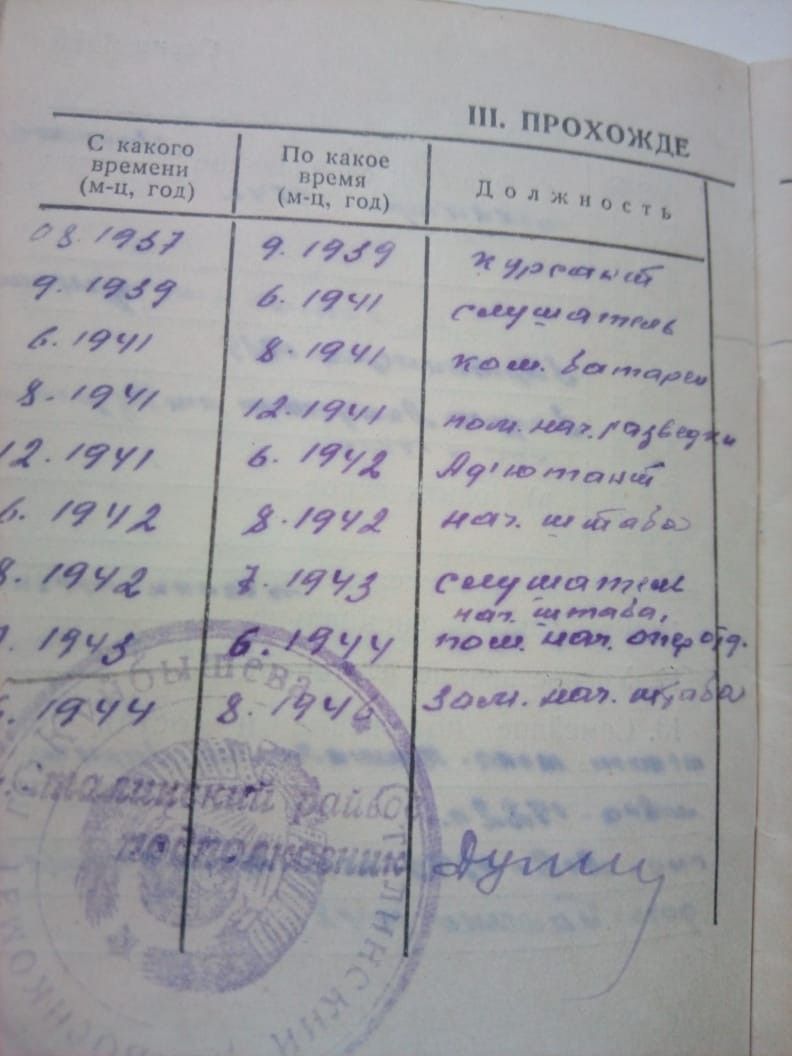 III. ПРОХОЖДЕ
С какого времени (м-ц, год) По какое время (м-ц, год) Должность
08.1937 9.1939 курсант
9.1939 6.1941 слушатель
6.1941 8.1941 ком. батареи
8.1941 12.1941 пом. нач. разведки
12.1941 6.1942 Ад'ютант
6.1942 8.1942 нач. штаба
8.1942 7.1943 слушатель
нач. штаба,
1943 6.1944 пом. нач. опер отд.
6.1944 8.1946 зам. нач. штаба
Сталинский райвоо
подполковник
КУЙБЫШЕВА
СТАЛИНСКИЙ
ВОЕНКОМ